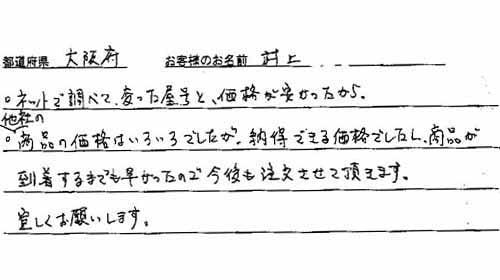 都道府県 大阪府 お客様のお名前 村上
○ネットで調べて、変った屋号と、価格が安かったから。
他社の
○商品の価格はいろいろでしたが、納得できる価格でしたし、商品が
到着するまでも早かったので今後も注文させて頂きます。
宜しくお願いします。